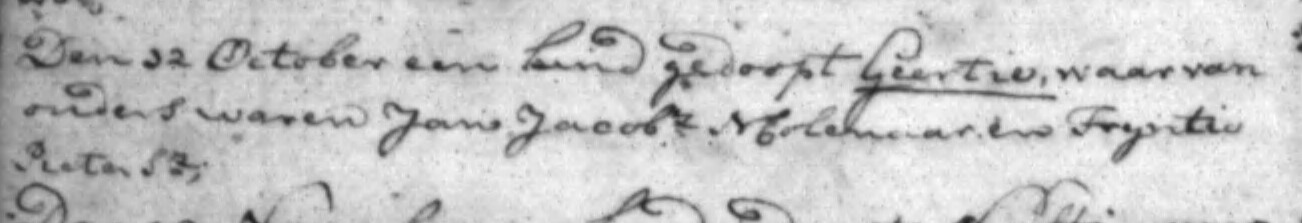 Den 12 October een kind gedoopt Geertie, waar van
ouders waren Jan Jacobz Molenaar en Tryntie
Pieters z;